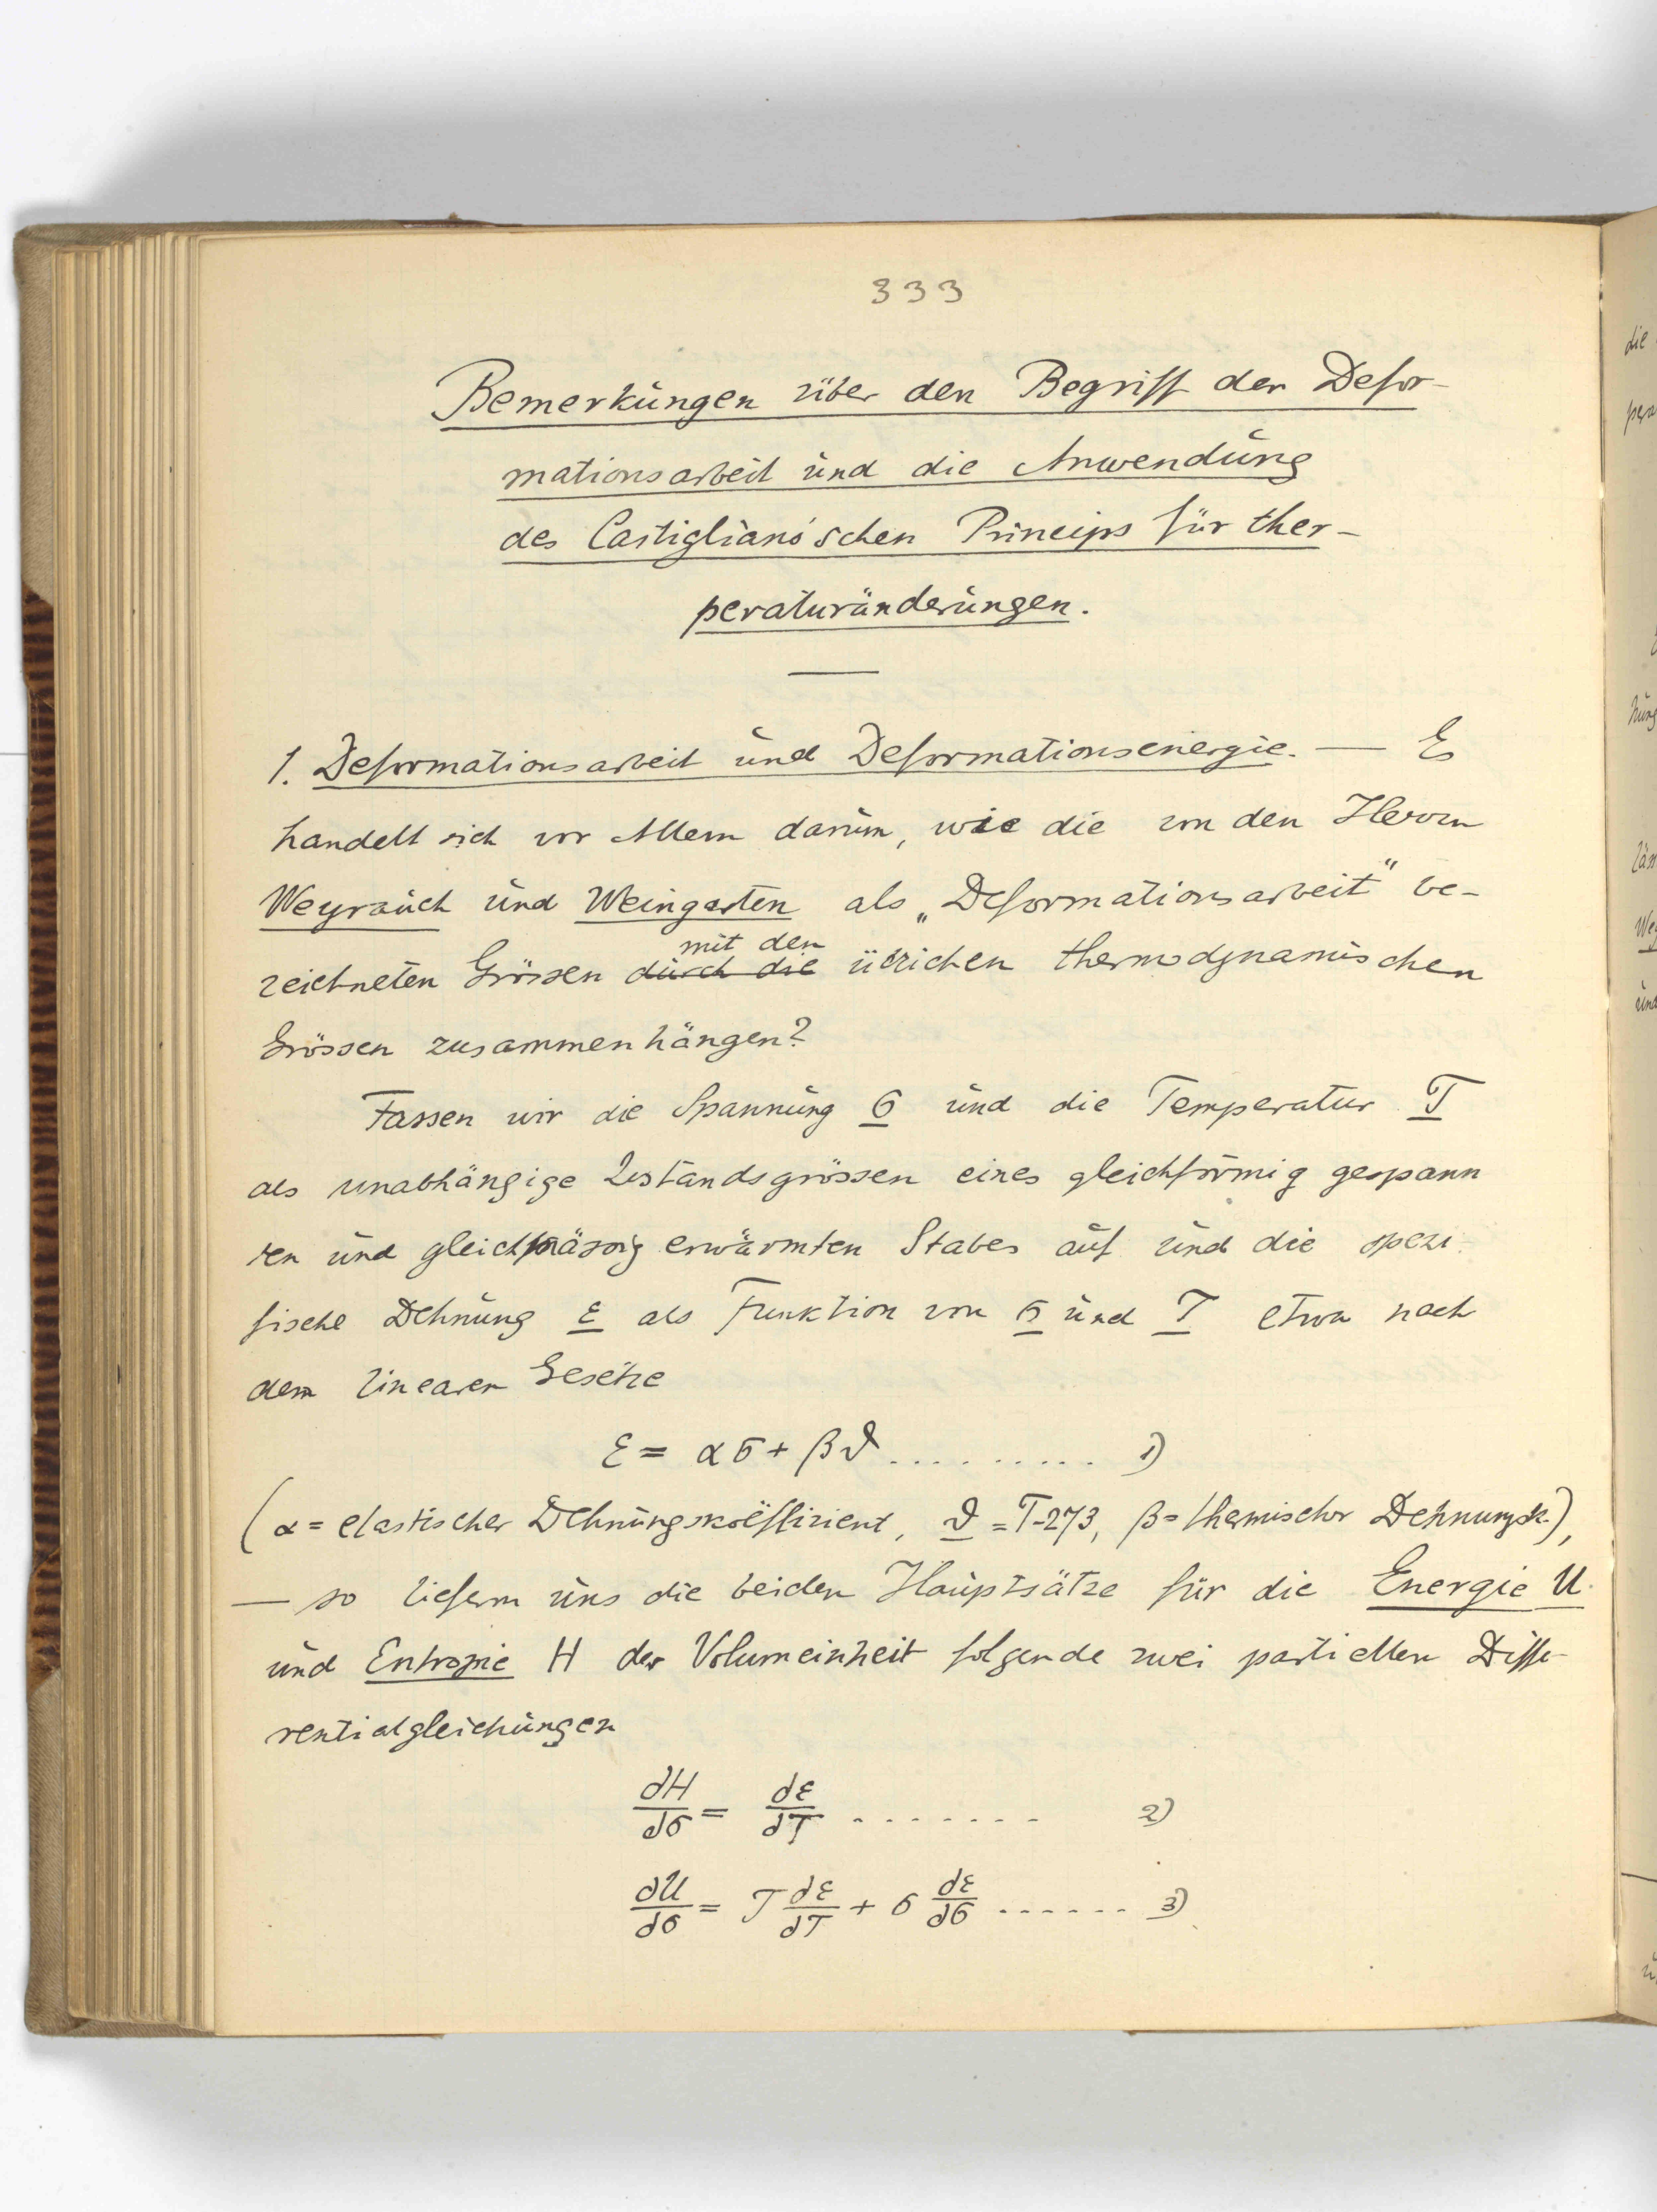 333
Bemerkungen über den Begriff der Defor-
mationsarbeit und die Anwendung
des Castigliano'schen Princips für ther-
peraturänderungen.
1. Deformationsarbeit und Deformationsenergie. — Es
handelt sich vor Allem darum, wie die von den Herren
Weyrauch und Weingarten als „Deformationsarbeit" be-
mit den
zeichneten Grössen durch die üblichen thermodynamischen
Grössen zusammenhängen?
Fassen wir die Spannung σ und die Temperatur T
als unabhängige Zustandsgrössen eines gleichförmig gespann
ten und gleichmässig erwärmten Stabes auf und die spezi-
fische Dehnung ε als Funktion von σ und T etwa nach
dem linearen Gesetze
ε = ασ + βϑ .......... 1)
(α = elastischer Dehnungskoëffizient, ϑ = T-273, β = thermischer Dehnungsk.),
— so liefern uns die beiden Hauptsätze für die Energie U
und Entropie H der Volumeinheit folgende zwei partiellen Diffe-
rentialgleichungen
∂H/∂σ = ∂ε/∂T ....... 2)
∂U/∂σ = T ∂ε/∂T + σ ∂ε/∂σ ...... 3)
die
pera
hung
läss
Wey
und